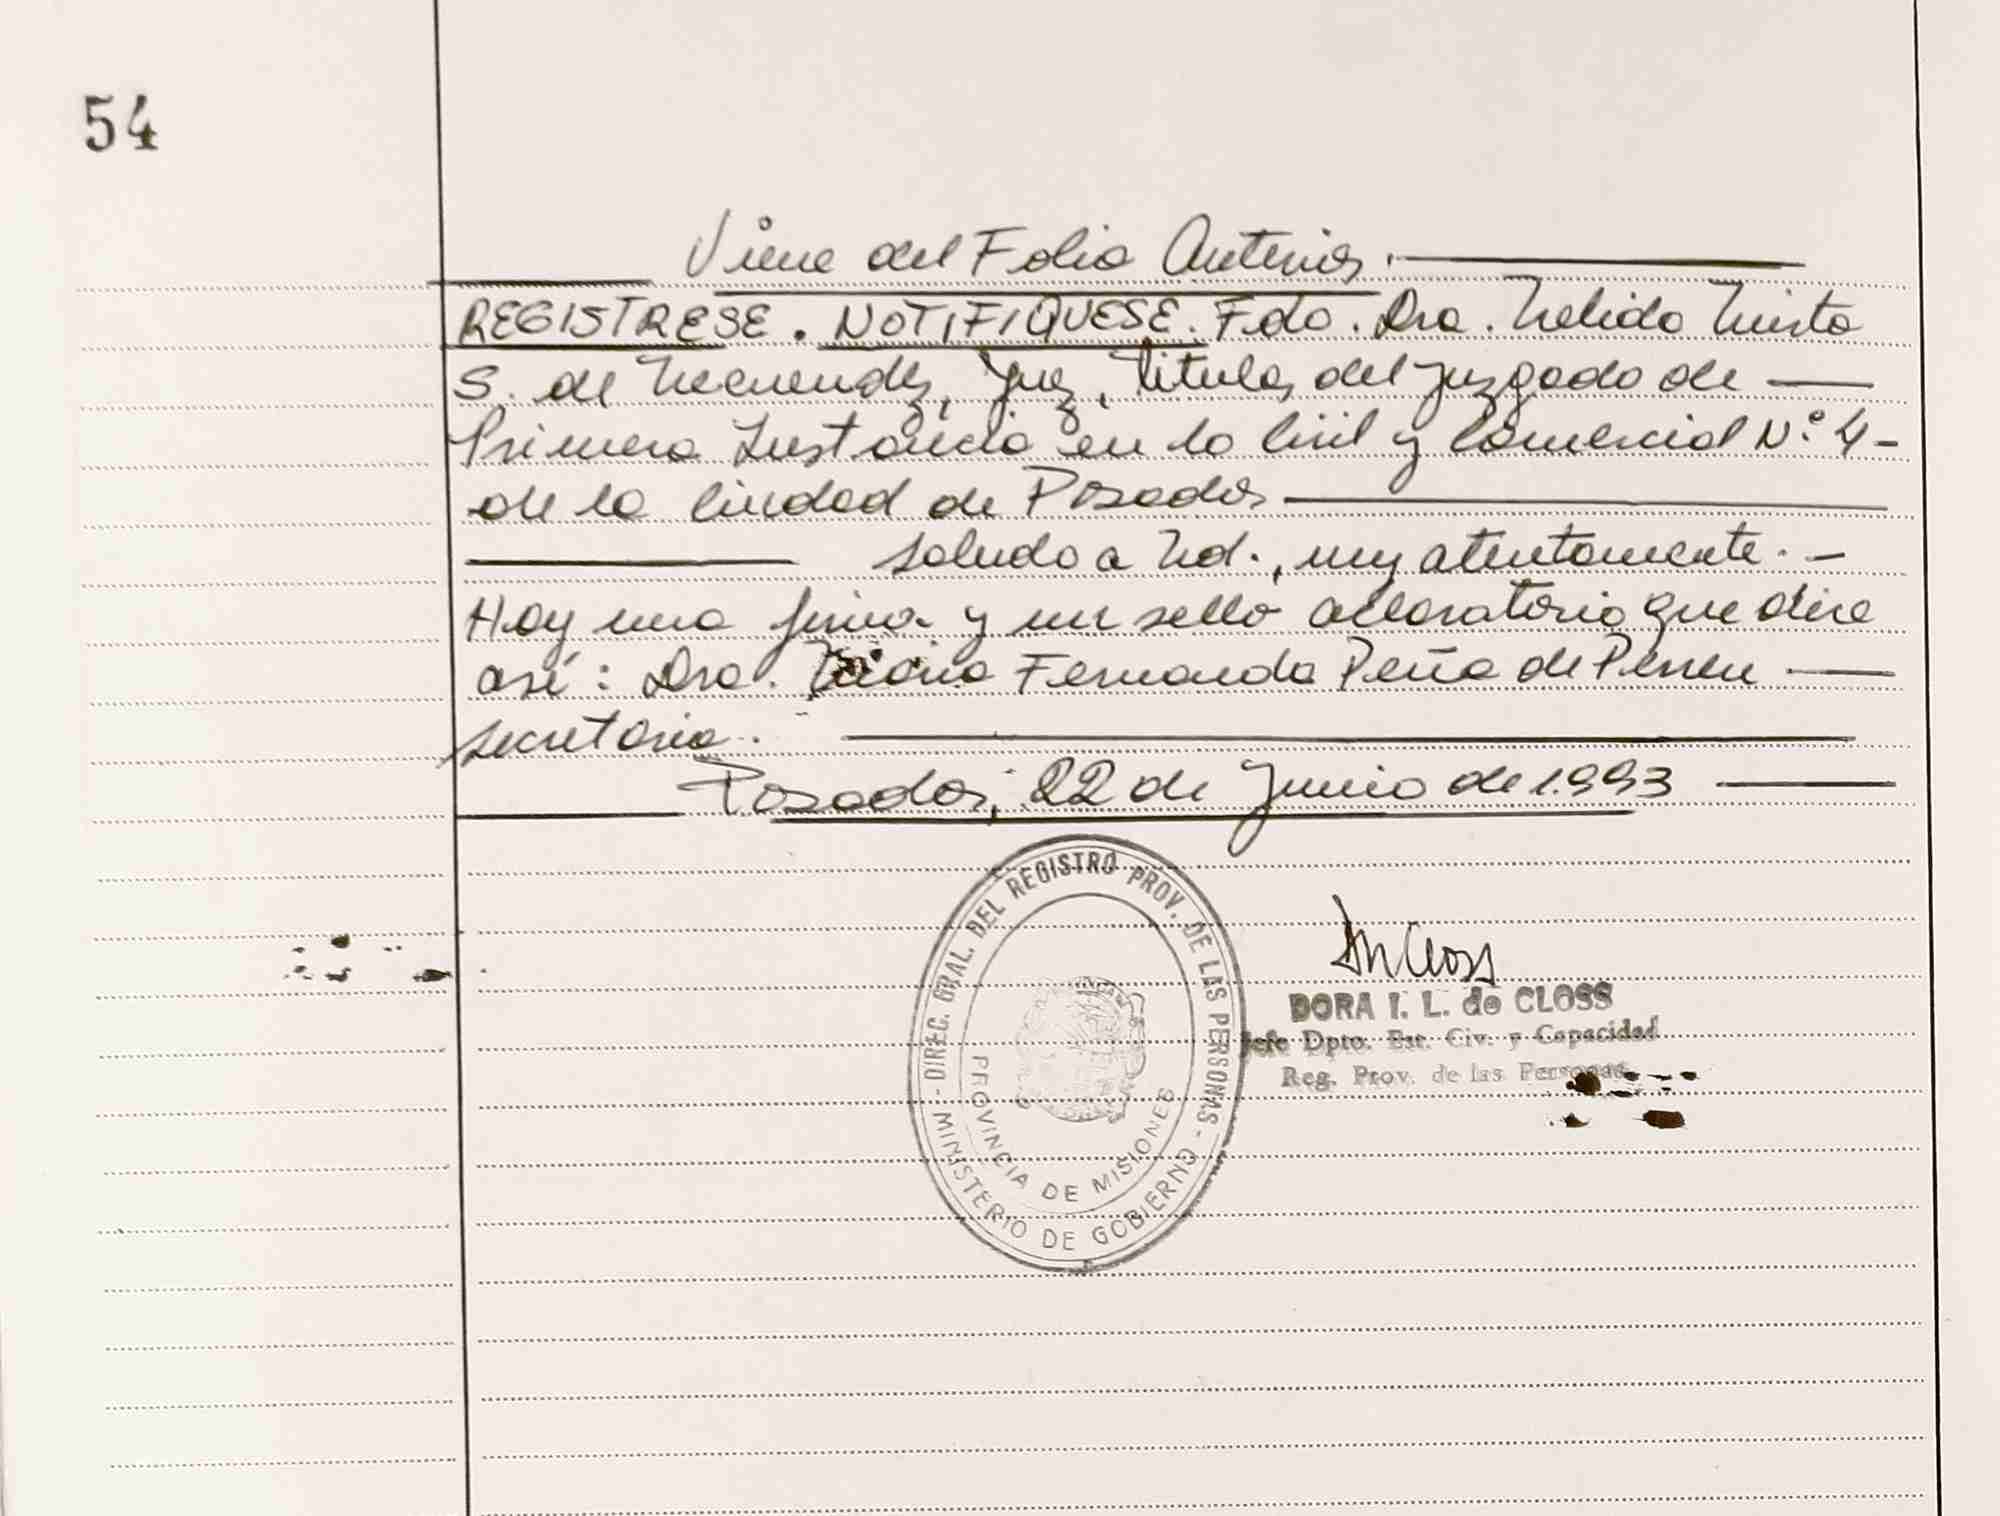 54
Viene del Folio Anterior.
REGISTRESE. NOTIFIQUESE. Fdo. Dra. Nelida
S. de Juez, Titular del Juzgado de
Primera Instancia en lo Civil y Comercial N.° 4-
de la Ciudad de Posadas
Saludo a Ud., muy atentamente. -
Hay una firma y un sello aclaratorio que dice
así: Dra. María Fernanda Peña de
Secretaria.
Posadas, 22 de Junio de 1.993
DIREC. GRAL. DEL REGISTRO PROV. DE LAS PERSONAS -
MINISTERIO DE GOBIERNO -
PROVINCIA DE MISIONES
DORA I. L. de CLOSS
Jefe Dpto. Est. Civ. y Capacidad
Reg. Prov. de las Personas